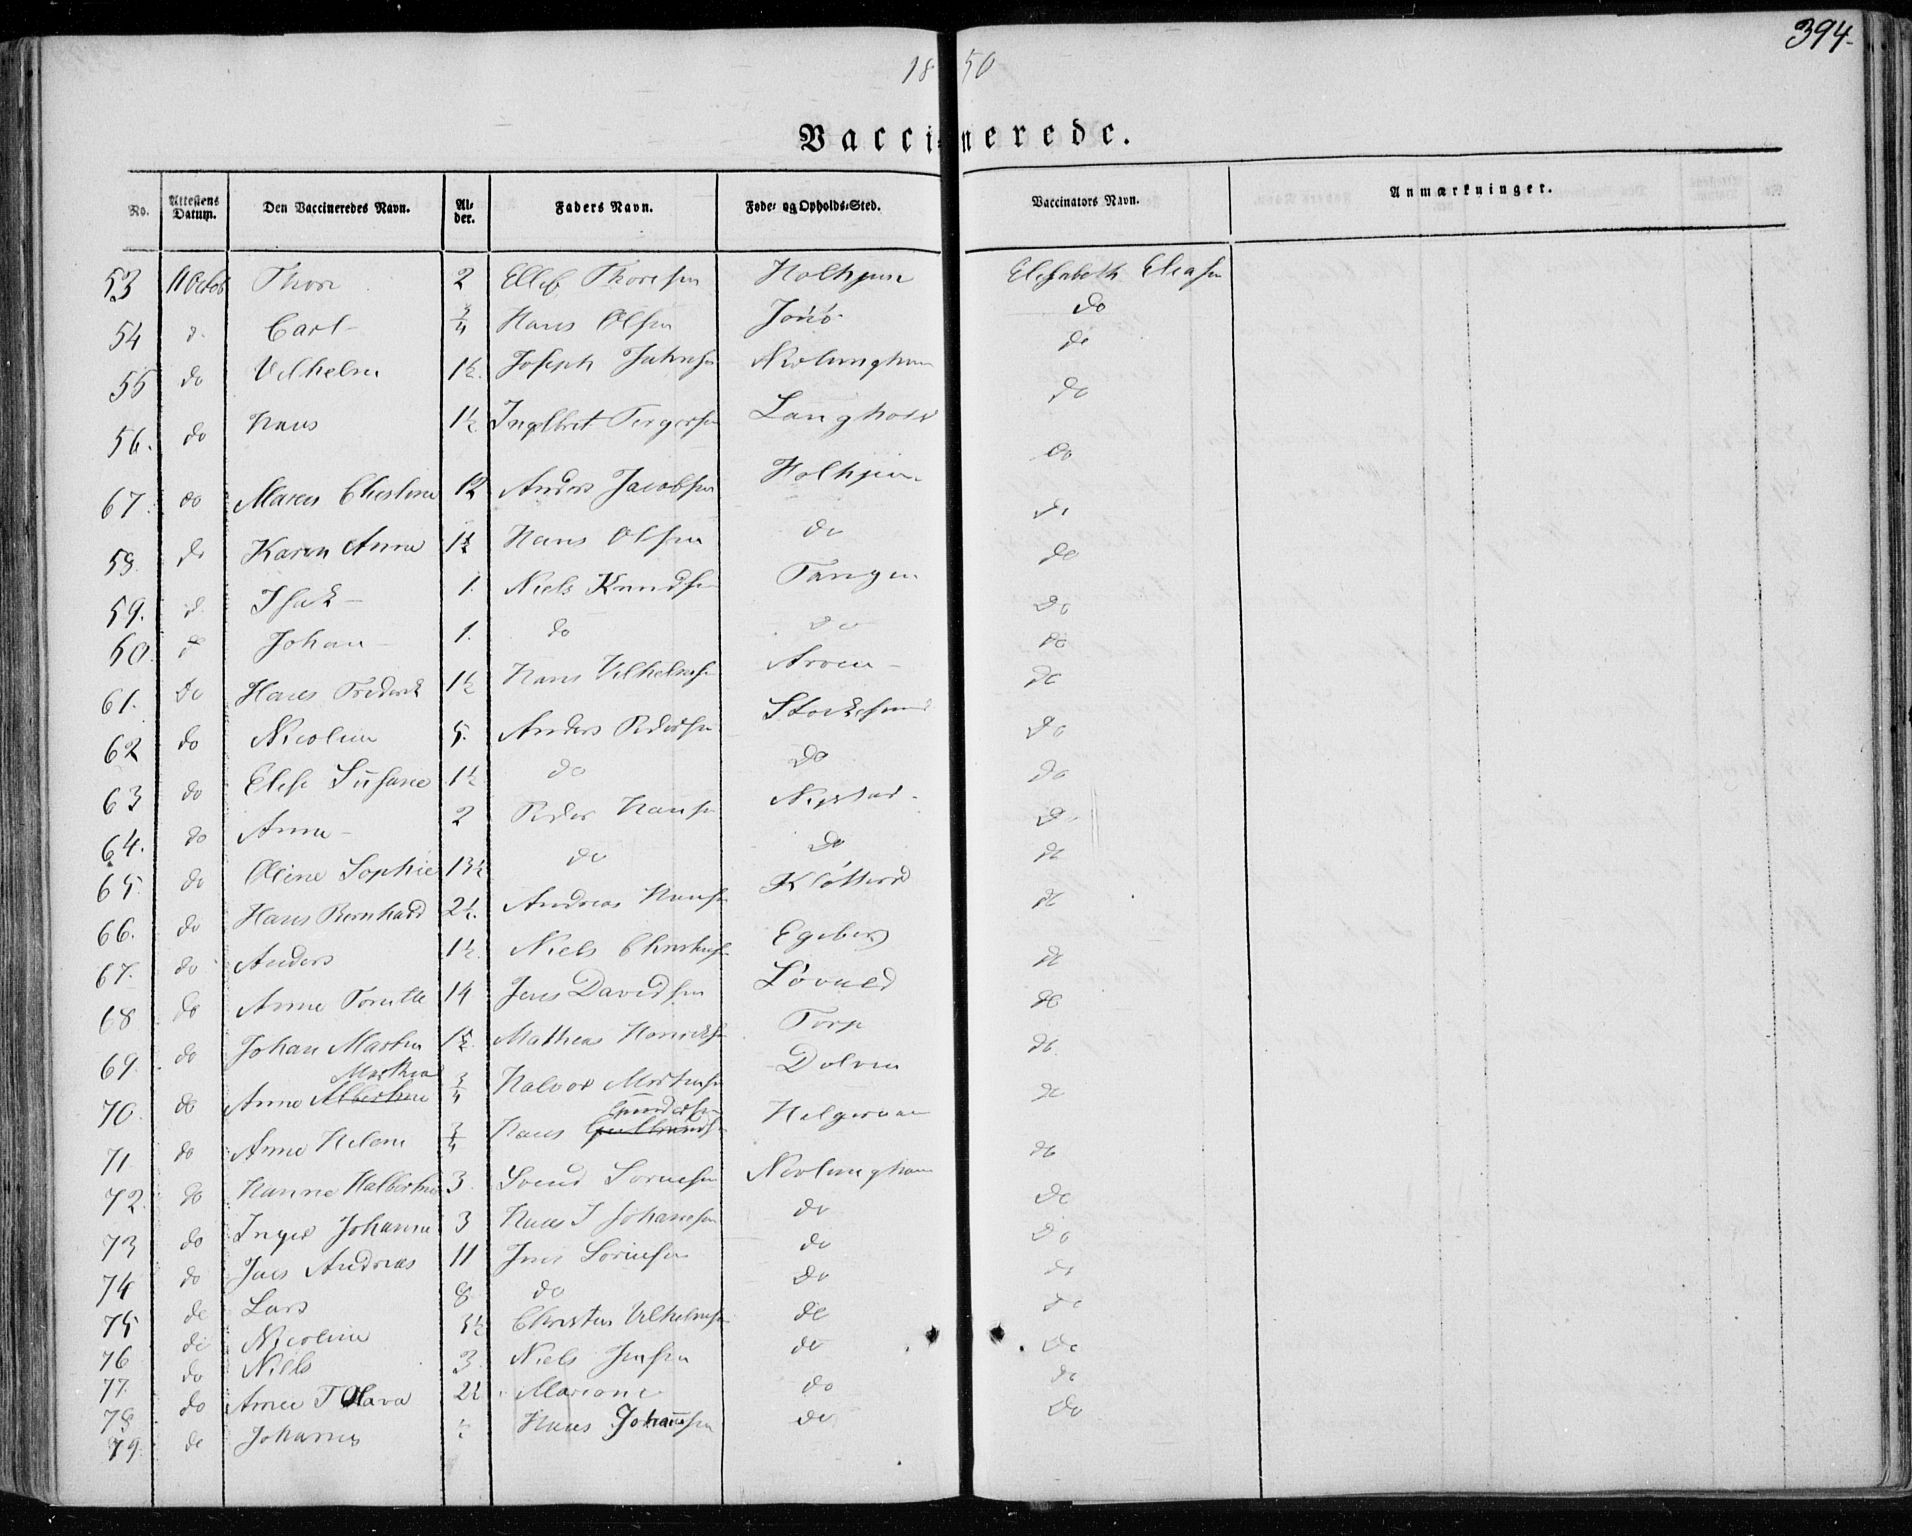 394.
1850
Vaccinerede.
No. Attestens Datum. Den Vaccineredes Navn. Al-der. Faders Navn. Føde- og Opholds-Sted. Vaccinators Navn. Anmærkninger.
53 11 Octob Thore 2 Ellef Thoresen Holhjem Elisabeth Eliasen
54 d. Carl 3/4 Hans Olsen do
55 do Vilhelm 1½ Joseph Nevlunghavn do
56. do Hans 1½ Ingelbret Langholdt do
67. do Maren Christine 12 Anders Jacobsen Holhjem do
58. do Karen Anne 1½ Hans Olsen do do
59. d. Isak 1. Niels Knudsen Tangen do
60. d Johan 1. do do do
61. do Hans Frederik 1½ Hans Vilhelmsen Aroen do
62 do Nicoline 5. Anders Pedersen do
63 do Elise Susane 1½ do do do
64. do Anne 2 Peder Hansen Nystad do
65 do Oline Sophie 13½ do do do
66. do Hans Bernhard 2½ Andreas Hansen do
67. do Anders 1½ Niels do
68 do Anne Torine 14 Jens Davidsen Løvald do
69. do Johan Martin 1½ Mathias Henriksen Torp do
70. do Anne Albertine Mathea 3/4 Halvor Mortensen Dolven do
71 do Anne Helene 3/4 Hans Gulbrandsen Gundersen Helgeroaen do
72. do Hanne Halbertine 3. Svend Sørensen Nevlunghavn do
73 do Inger Johanne 3 Hans J Johannesen do do
74 do Jens Andreas 11 Jens Sørensen do do
75 do Lars 8 do do do
76 do Nicoline 3½ Christen Vilhelmsen do do
77. do Niels 3. Niels Jensen do do
78 do Anne T Olava 2½ Marione do do
79. do Johannes ½ Hans Johansen do do